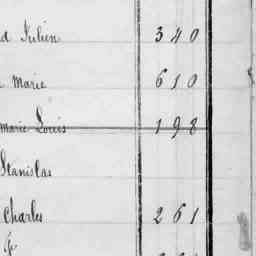 d Julien 340
Marie 610
Marie Louis 198
Stanislas
Charles 261